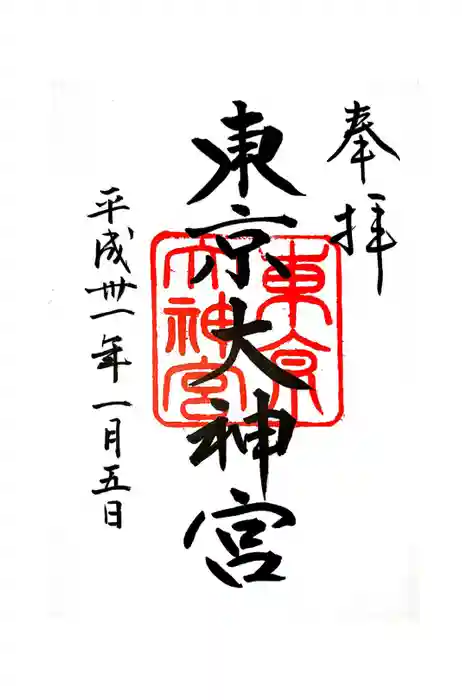 奉拝
東京大神宮
東京
大神宮
平成卅一年一月五日